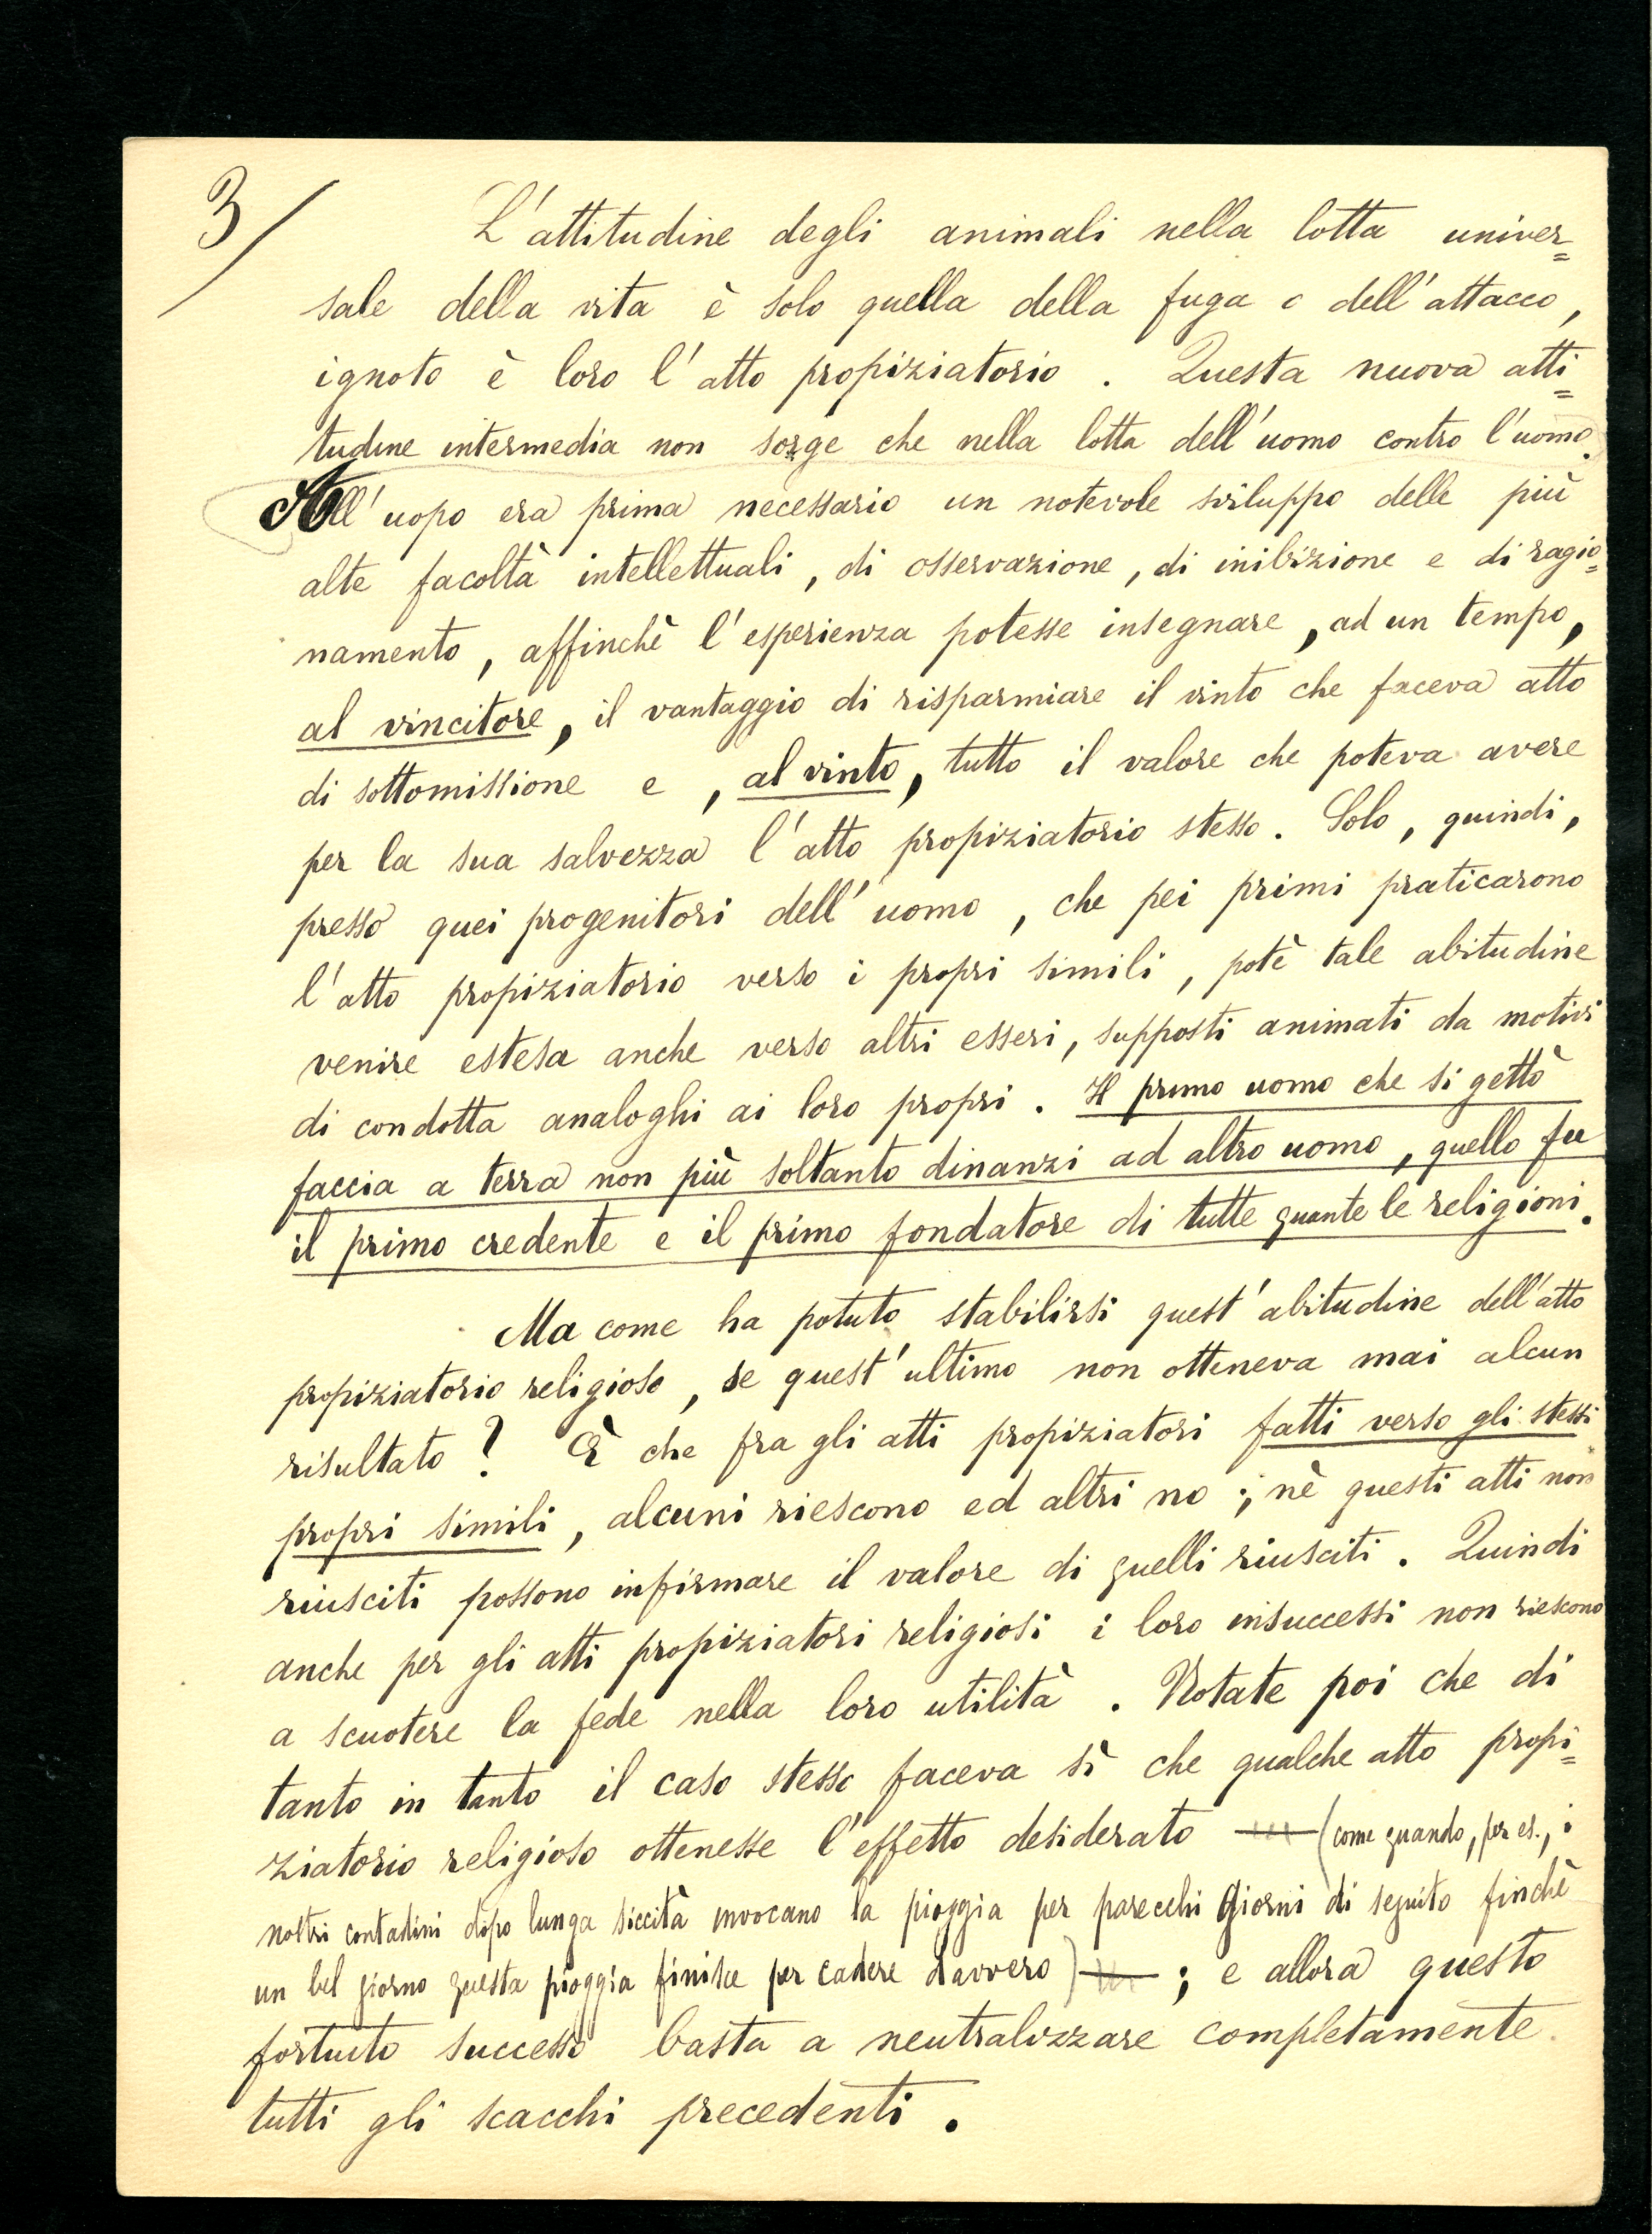 3/
L'attitudine degli animali nella lotta univer=
sale della vita è solo quella della fuga o dell'attacco,
ignoto è loro l'atto propiziatorio. Questa nuova atti=
tudine intermedia non sorge che nella lotta dell'uomo contro l'uomo.
All'uopo era prima necessario un notevole sviluppo delle più
alte facoltà intellettuali, di osservazione, di inibizione e di ragio=
namento, affinchè l'esperienza potesse insegnare, ad un tempo,
al vincitore, il vantaggio di risparmiare il vinto che faceva atto
di sottomissione e, al vinto, tutto il valore che poteva avere
per la sua salvezza l'atto propiziatorio stesso. Solo, quindi,
presso quei progenitori dell'uomo, che pei primi praticarono
l'atto propiziatorio verso i propri simili, potè tale abitudine
venire estesa anche verso altri esseri, supposti animati da motivi
di condotta analoghi ai loro propri. Il primo uomo che si gettò
faccia a terra non più soltanto dinanzi ad altro uomo, quello fu
il primo credente e il primo fondatore di tutte quante le religioni.
Ma come ha potuto stabilirsi quest'abitudine dell'atto
propiziatorio religioso, se quest'ultimo non otteneva mai alcun
risultato? È che fra gli atti propiziatori fatti verso gli stessi
propri simili, alcuni riescono ed altri no; nè questi atti non
riusciti possono infirmare il valore di quelli riusciti. Quindi
anche per gli atti propiziatori religiosi i loro insuccessi non riescono
a scuotere la fede nella loro utilità. Notate poi che di
tanto in tanto il caso stesso faceva sì che qualche atto propi=
ziatorio religioso ottenesse l'effetto desiderato — (come quando, per es., i
nostri contadini dopo lunga siccità invocano la pioggia per parecchi giorni di seguito finchè
un bel giorno questa pioggia finisce per cadere davvero) — ; e allora questo
fortuito successo basta a neutralizzare completamente
tutti gli scacchi precedenti.